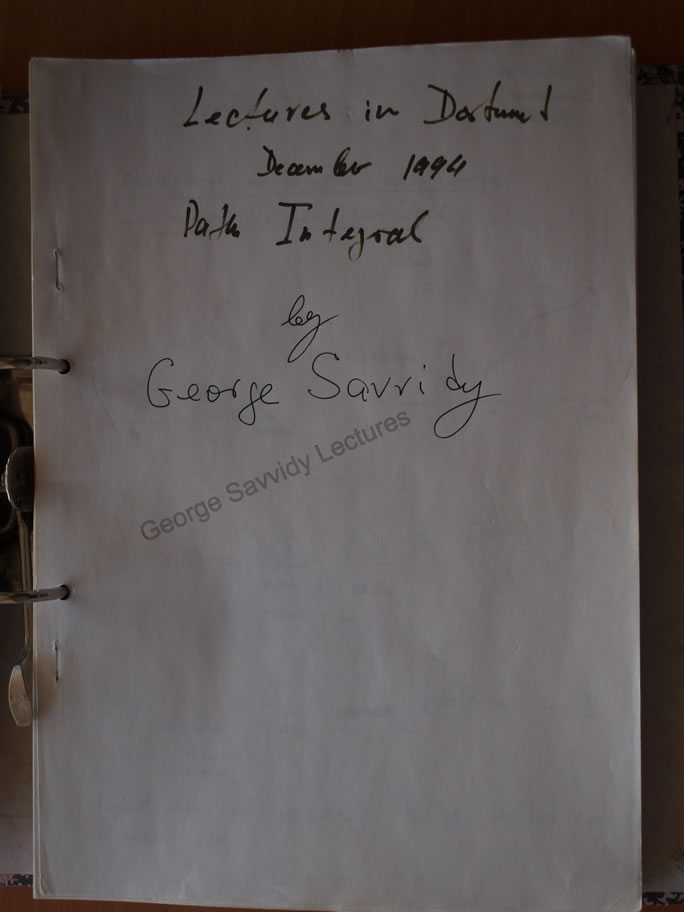 Lectures in Dortmund
December 1994
Path Integral
by
George Savvidy
George Savvidy Lectures